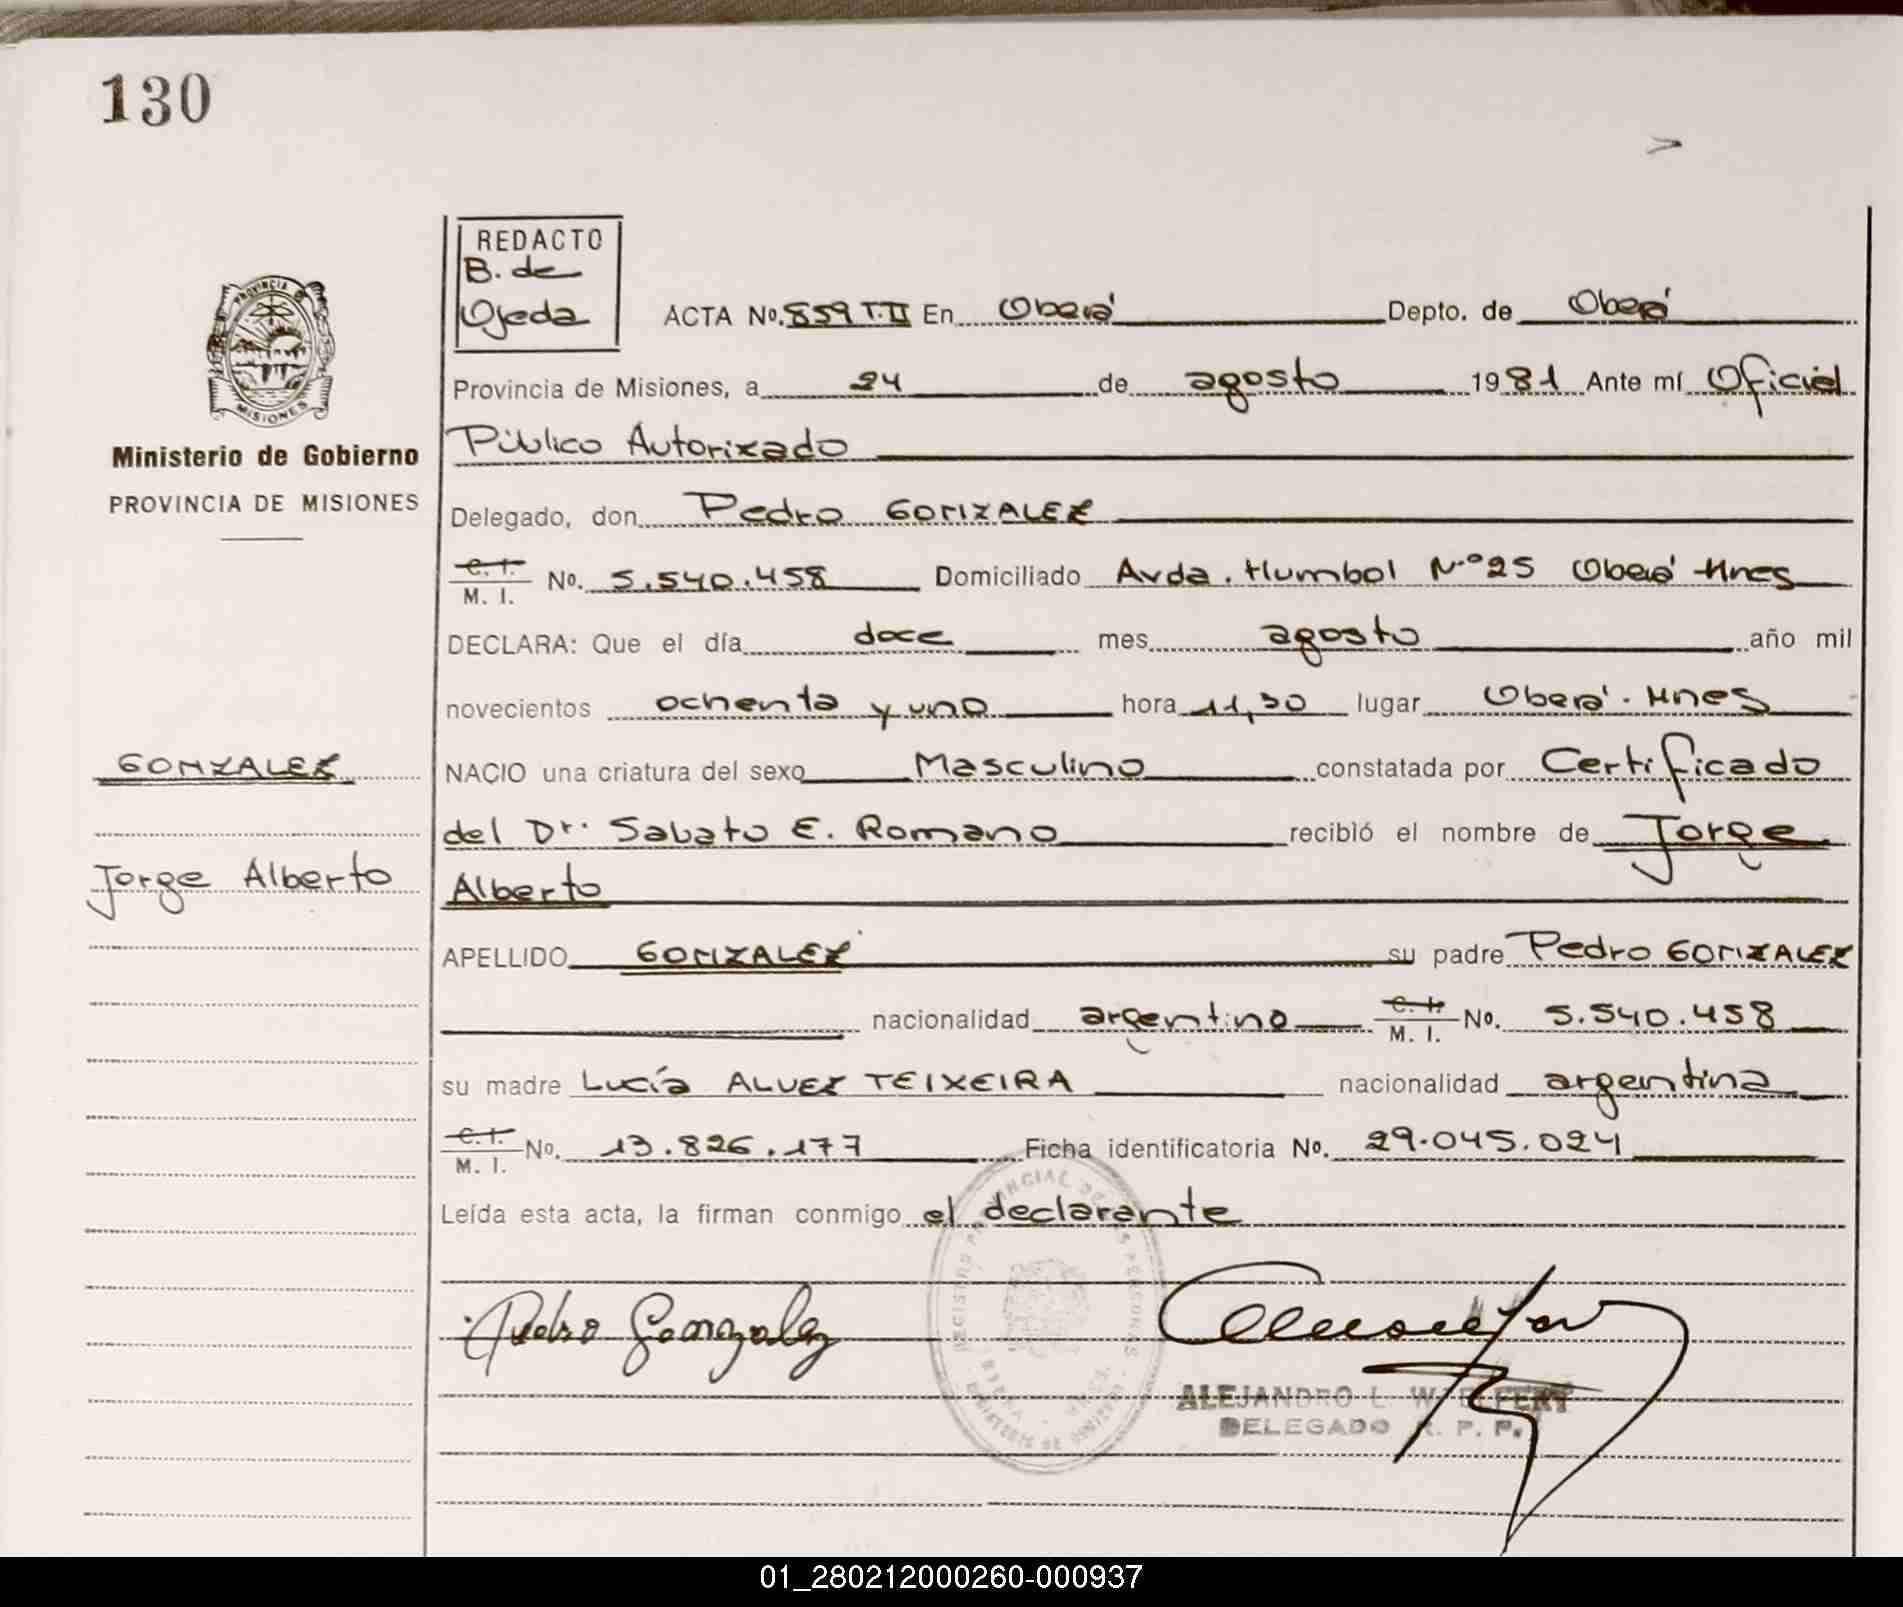 130
REDACTO
B. de
Ojeda
ACTA No. 859 T.II En Oberá Depto. de Oberá
PROVINCIA DE
MISIONES
Provincia de Misiones, a 24 de agosto 1981 Ante mí Oficial
Público Autorizado
Ministerio de Gobierno
PROVINCIA DE MISIONES
Delegado, don Pedro GONZALEZ
C. I. / M. I. No. 5.540.458 Domiciliado Avda. Humbol N.º 25 Oberá Mnes
DECLARA: Que el día doce mes agosto año mil
novecientos ochenta y uno hora 11,30 lugar Oberá. Mnes
GONZALEZ
NACIO una criatura del sexo Masculino constatada por Certificado
del Dr. Sabato E. Romano recibió el nombre de Jorge
Jorge Alberto
Alberto
APELLIDO GONZALEZ su padre Pedro GONZALEZ
nacionalidad argentino C. I. / M. I. No. 5.540.458
su madre Lucía ALVEZ TEIXEIRA nacionalidad argentina
C. I. / M. I. No. 13.826.177 Ficha identificatoria No. 29.045.024
Leída esta acta, la firman conmigo el declarante
REGISTRO PROVINCIAL DE LAS PERSONAS
Pedro Gonzalez
ALEJANDRO L.
DELEGADO R. P. P.
01_280212000260-000937